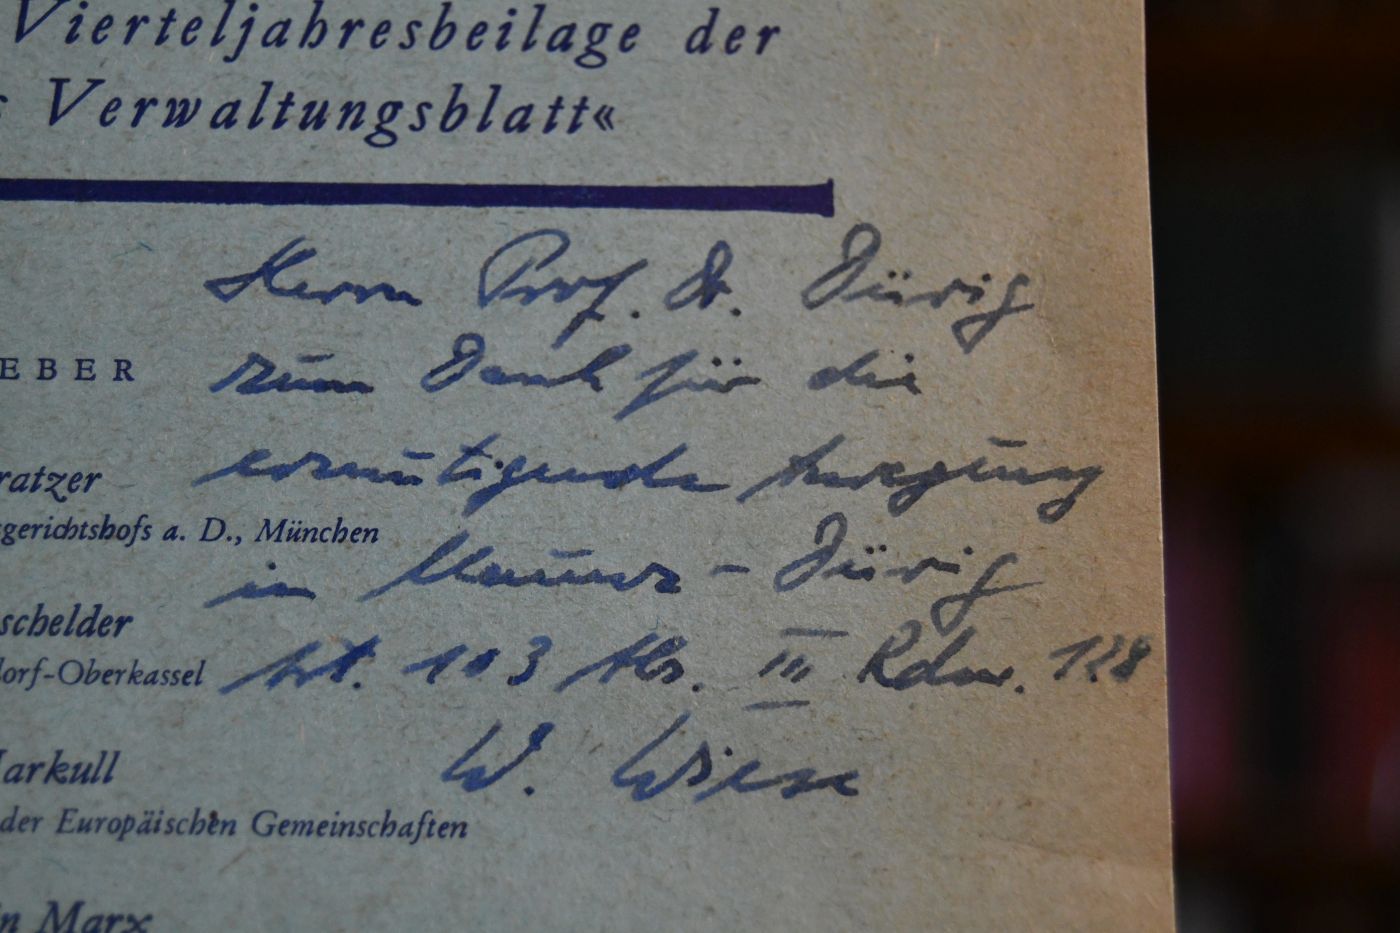 Vierteljahresbeilage der
s Verwaltungsblatt«
Herrn Prof. Dr. Dürig
EBER
zum Dank für die
ratzer
ermutigende Anregung
sgerichtshofs a. D., München
in Maunz-Dürig
schelder
Art. 103 Abs. III Rdnr. 128
dorf-Oberkassel
W. Wiese
Markull
der Europäischen Gemeinschaften
in Marx